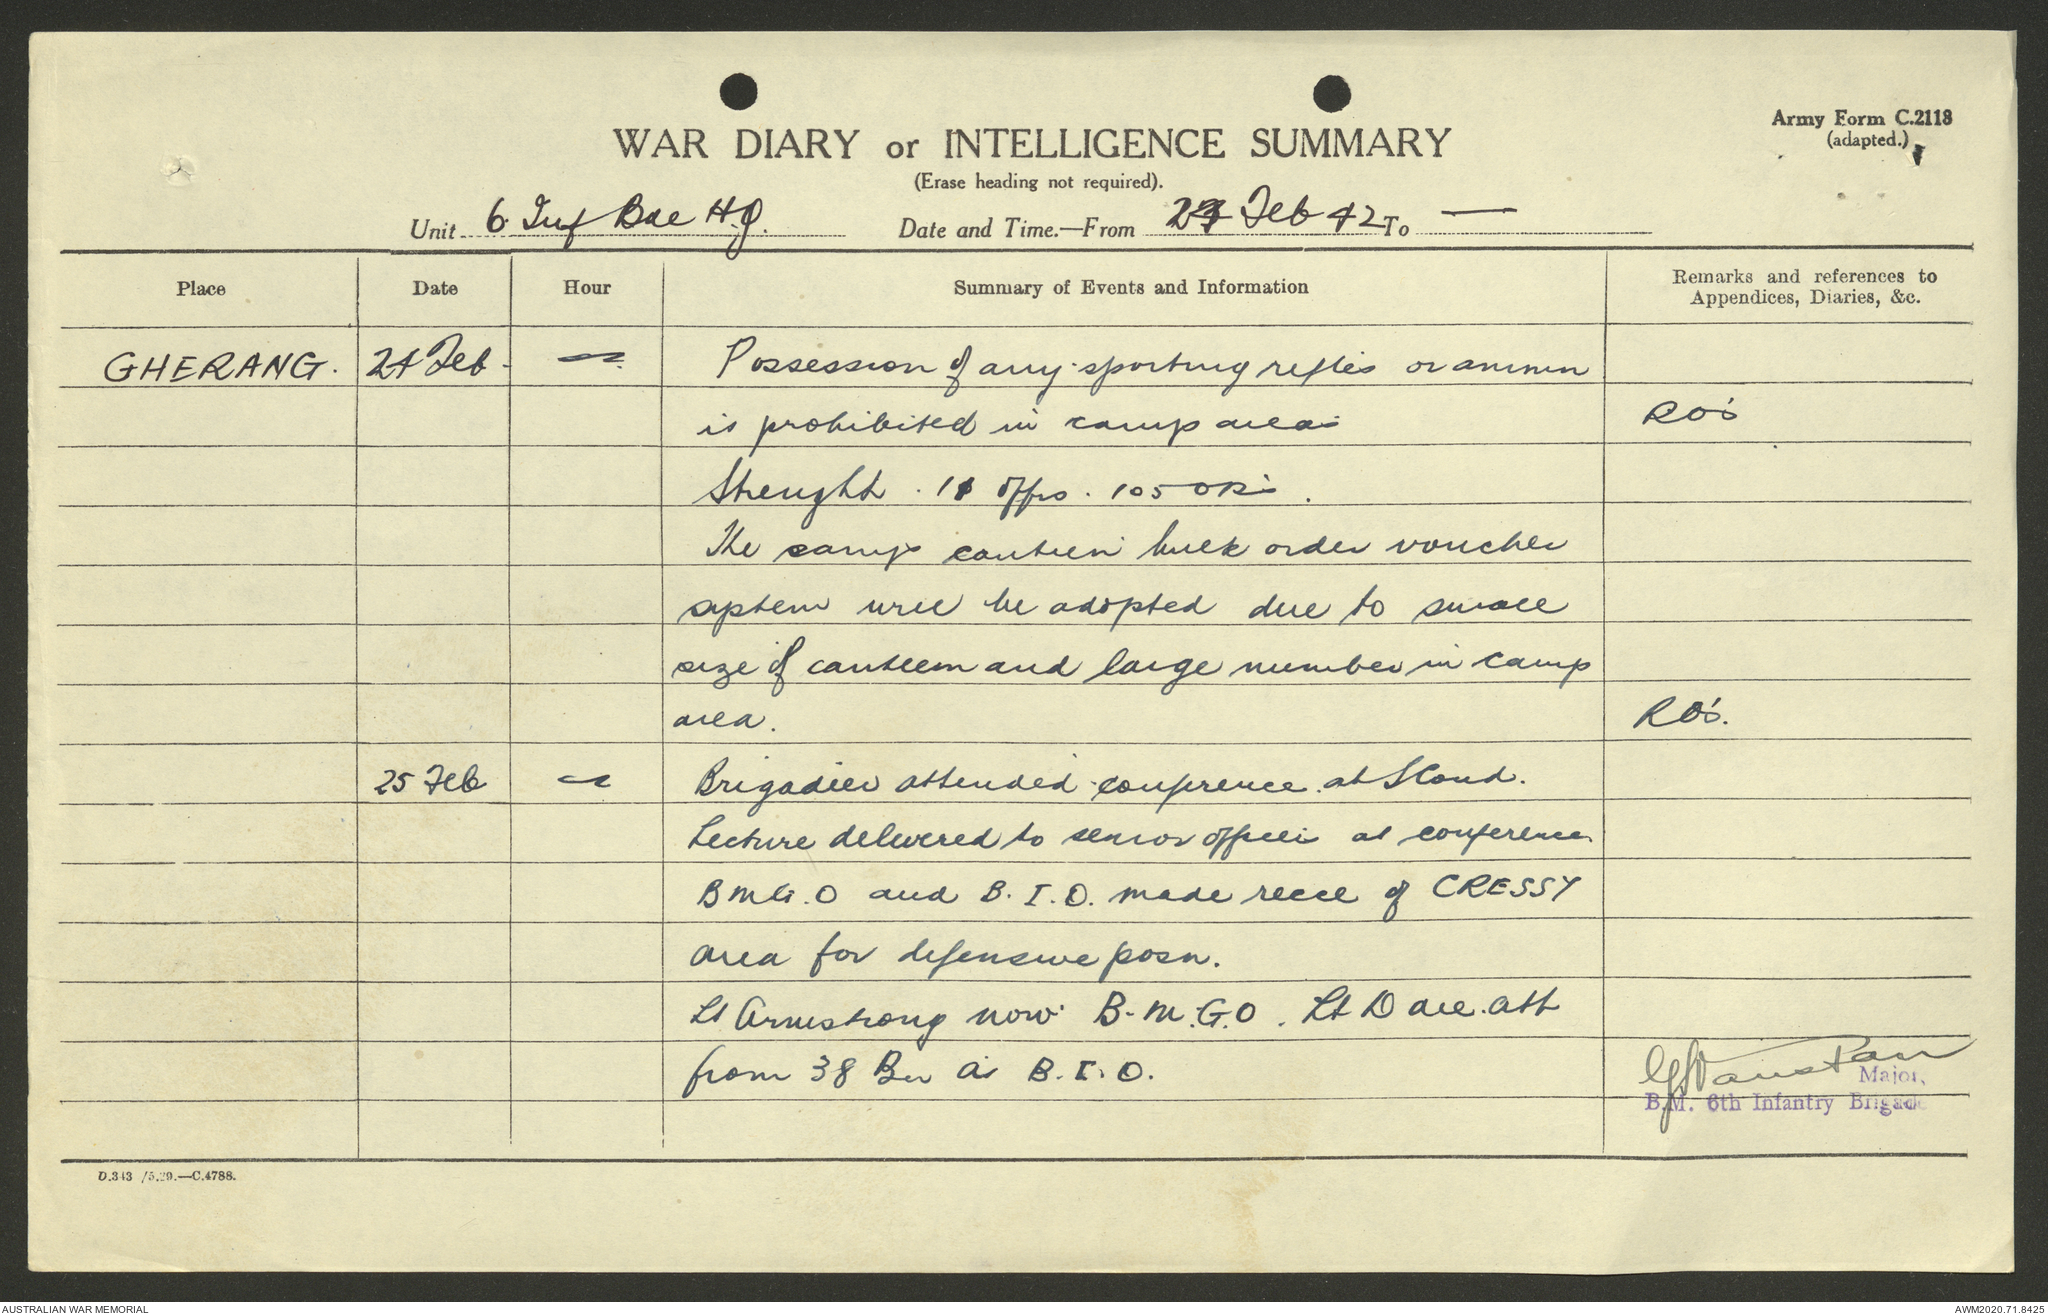 Army Form C.2118
(adapted.)
WAR DIARY or INTELLIGENCE SUMMARY
(Erase heading not required).
Unit 6 Inf Bde H.Q. Date and Time.—From 24 Feb 42 To —
Place Date Hour Summary of Events and Information Remarks and references to
Appendices, Diaries, &c.
GHERANG. 24 Feb - Possession of any sporting rifles or ammn
is prohibited in camp areas RO's
Strenght . 11 offrs . 105 ORs .
The camp canteen bulk order voucher
system will be adopted due to small
size of canteen and large number in camp
area. RO's.
25 Feb Brigadier attended conference at
Lecture delivered to senior officers at conference
B M G. O and B. I. O. made recce of CRESSY
area for defensive posn.
Lt Armstrong now B. M. G. O . Lt att
from 38 Bn as B. I. O.
Major,
B.M. 6th Infantry Brigade
D.343 /5.29.—C.4788.
AUSTRALIAN WAR MEMORIAL AWM2020.71.8425